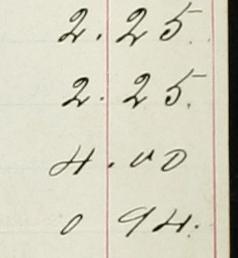 2.25
2.25
4.00
0 94.